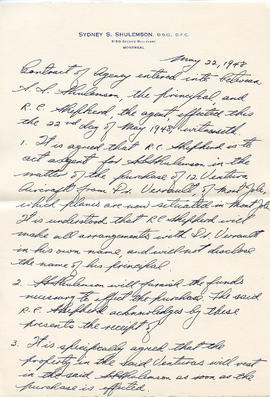 SYDNEY S. SHULEMSON, D.S.O., D.F.C.
MONTREAL
May 22, 1948
Contract of Agency entered into between
S. S. Shulemson, the principal, and
R. C. Shepherd, the agent, effected this
the 22nd day of May 1948, witnesseth.
1. It is agreed that R.C. Shepherd is to
act as agent for SSShulemson in the
matter of the purchase of 12 Ventura
Aircraft from Dr. Verrault of Mont Joli,
which planes are now situated in Mont Joli.
It is understood that R.C. Shepherd will
make all arrangements with Dr. Verrault
in his own name, and will not disclose
the name of his principal.
2. SSShulemson will furnish the funds
necessary to effect the purchase. The said
R.C. Shepherd acknowledges by these
presents the receipt of
3. It is specifically agreed that the
property in the said Venturas will vest
in the said SSShulemson as soon as the
purchase is effected.